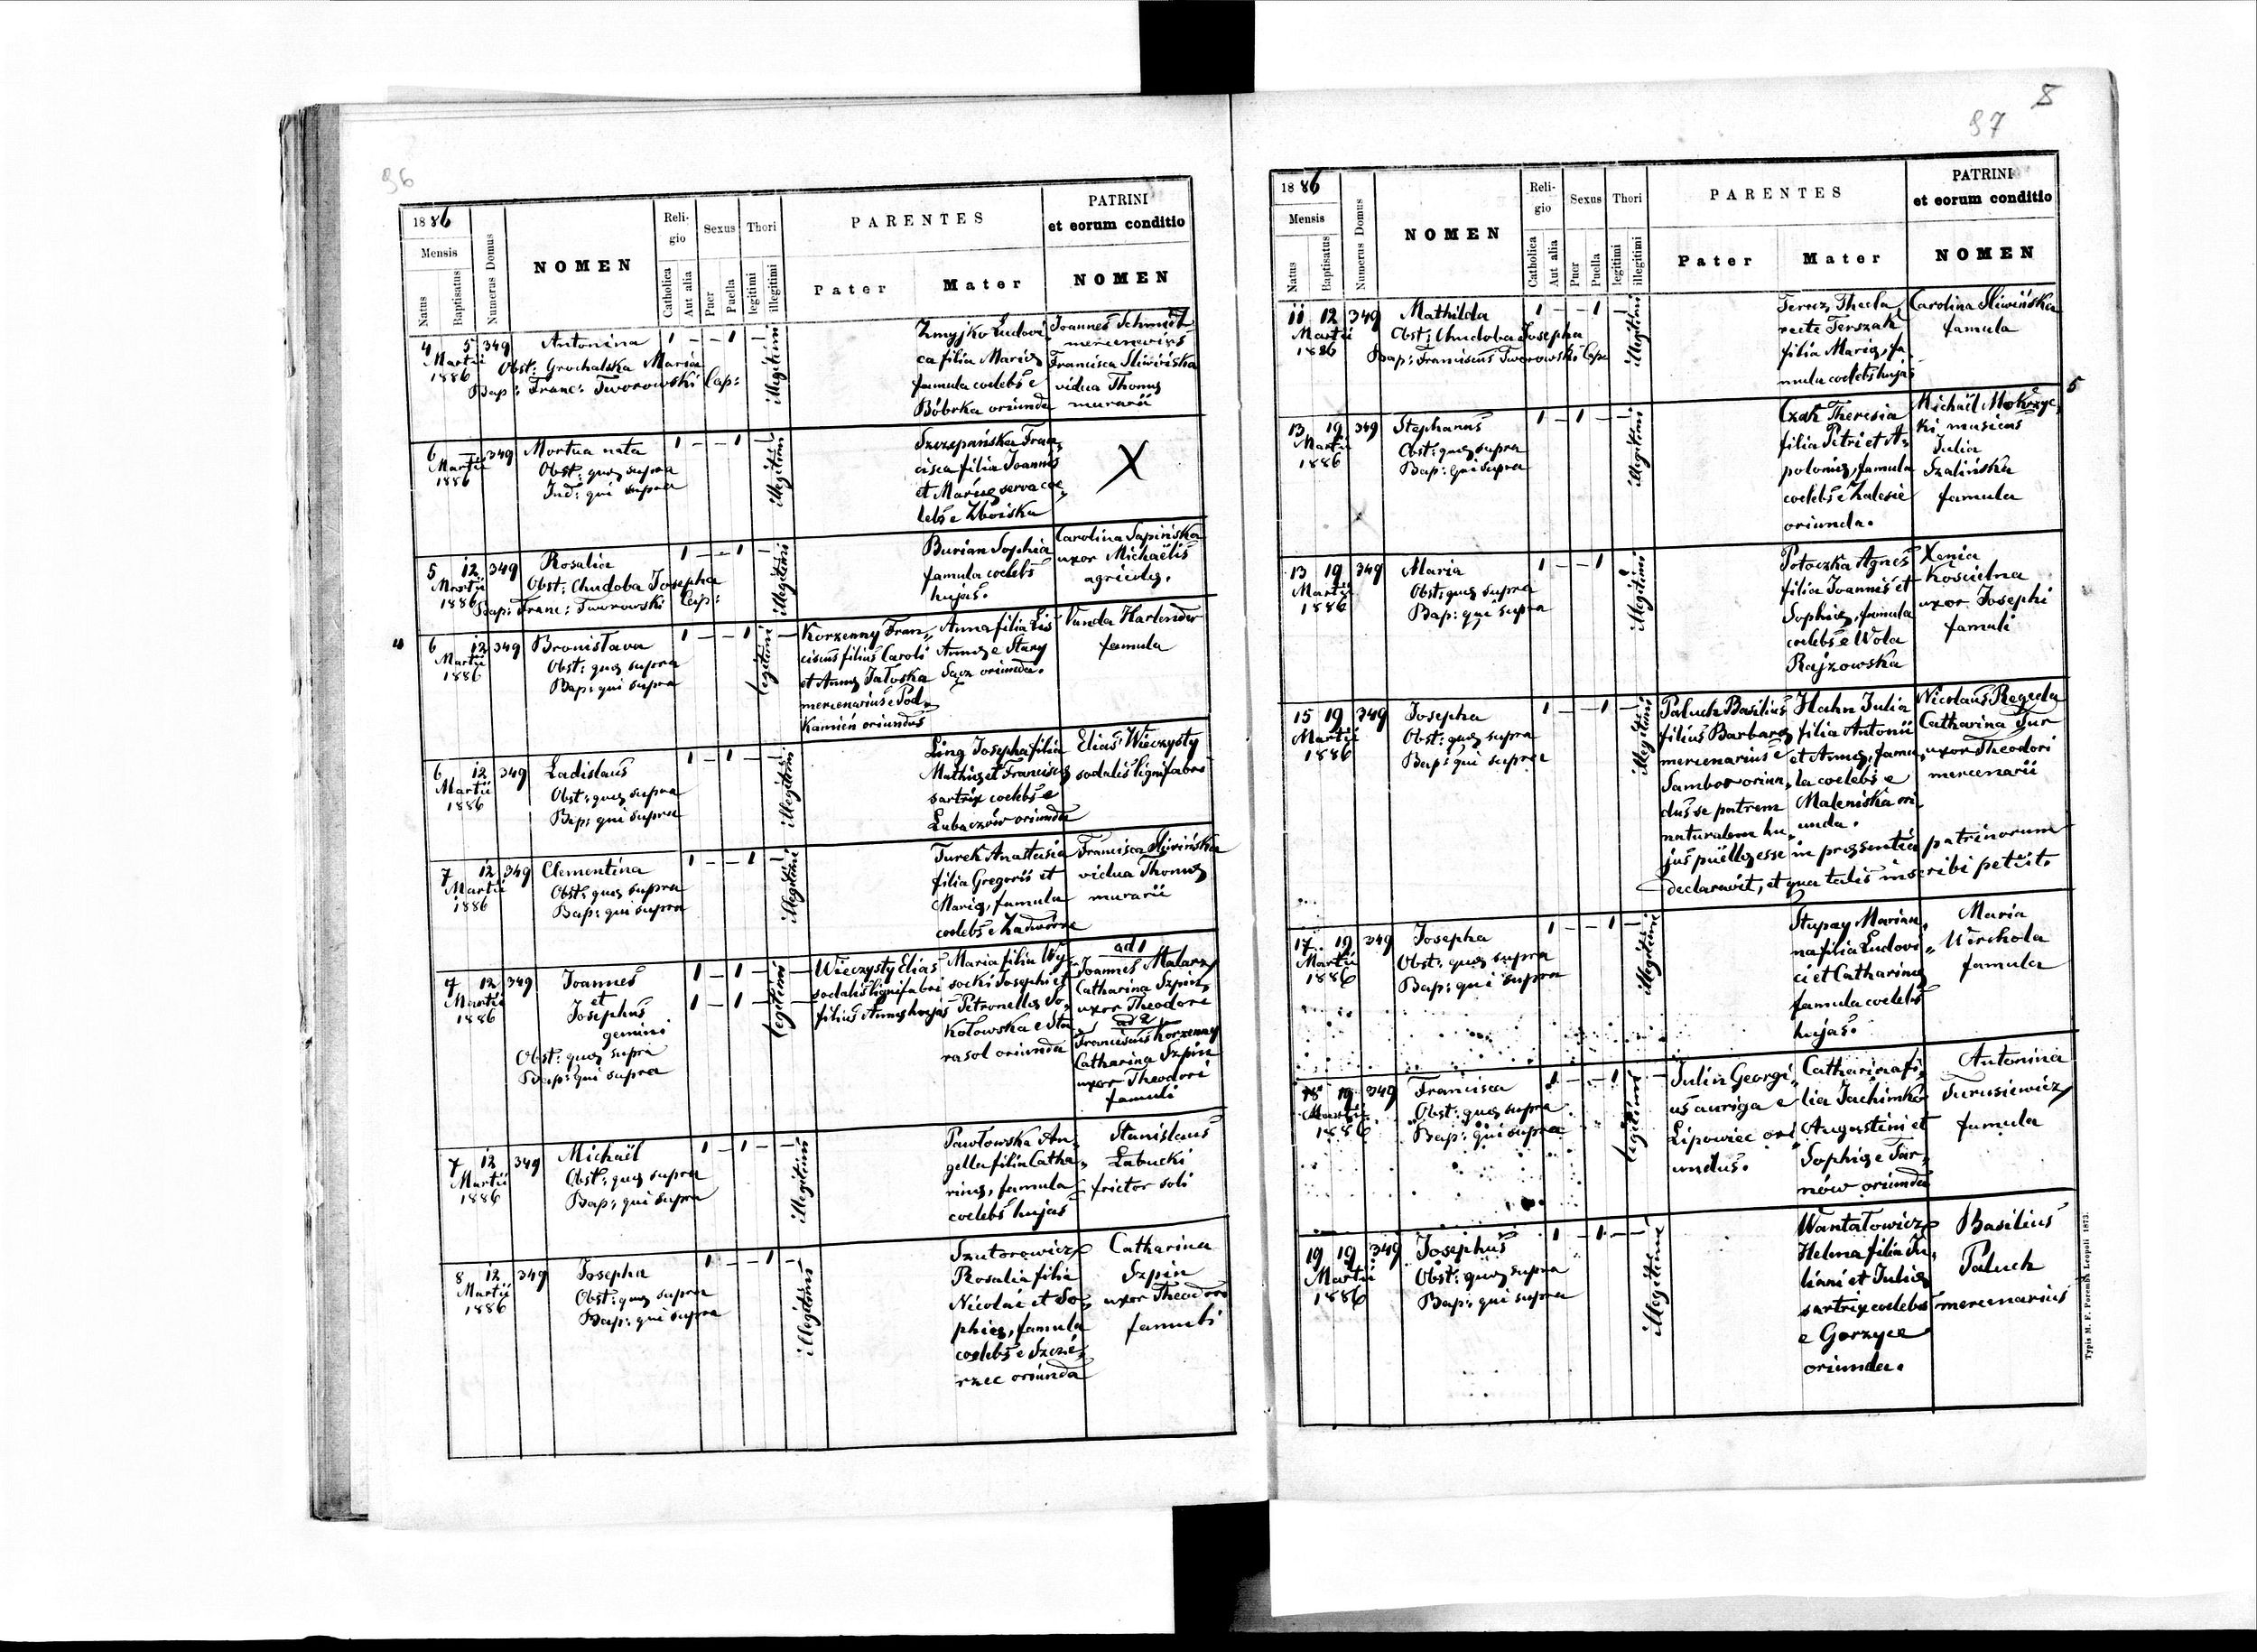 96
1886
Mensis
Natus
Baptisatus
Numerus Domus
NOMEN
Religio
Catholica
Aut alia
Sexus
Puer
Puella
Thori
legitimi
illegitimi
PARENTES
Pater
Mater
PATRINI
et eorum conditio
NOMEN
4 5 349
Martii
1886
Antonina
Obst: Grochalska Maria
Bap: Franc: Tworowski Cap:
1 – – 1 –
illegitimi
Zmyjko Ludovi
ca filia Mariæ
famula coelebs e
Bóbrka oriunda
Joannes Schmidt
mercenarius
Francisca Sliwińska
vidua Thomæ
murarii
6 – 349
Martii
1886
Mortua nata
Obst: quæ supra
Ind: qui supra
1 – – 1 –
illegitimi
Szczepańska Fran„
cisca filia Joannis
et Mariæ serva coe„
lebs e Zboiska
X
5 12 349
Martii
1886
Rosalia
Obst: Chudoba Josepha
Bap: Franc: Tworowski Cap:
1 – – 1 –
illegitimi
Burian Sophia
famula coelebs
hujas.
Carolina Sapińska
uxor Michaëlis
agricolæ.
6 12 349
Martii
1886
Bronislava
Obst: quæ supra
Bap: qui supra
1 – – 1 –
legitimi
Korzenny Fran„
ciscus filius Caroli
et Annæ Jatoska
mercenarius e Pod„
Kamień oriundus
Anna filia Lis
Annæ e Stary
Sącz oriunda.
Vanda Harlender
famula
6 12 349
Martii
1886
Ladislaus
Obst: quæ supra
Bap: qui supra
1 – 1 – –
illegitimi
Ling Josepha filia
Mathiæ et Franciscæ
sartrix coelebs e
Lubaczów oriunda
Elias Wieczysty
sodalis lignifabri
7 12 349
Martii
1886
Clementina
Obst: quæ supra
Bap: qui supra
1 – – 1 –
illegitimi
Turek Anastasia
filia Gregorii et
Mariæ, famula
coelebs e Nadwórna
Francisca Sliwińska
vidua Thomæ
murarii
7 12 349
Martii
1886
Joannes
et
Josephus
gemini
Obst: quæ supra
Bap: qui supra
1 – 1 – –
1 – 1 –
legitimi
Wieczysty Elias
sodalis lignifabri
filius Annæ hujas
Maria filia Wy„
socki Josephi et
Petronellæ So„
kołowska e Sta„
rasol oriunda
ad 1
Joannes Malarz
Catharina Szpin
uxor Theodori
ad 2
Franciscus Korzenny
Catharina Szpin
uxor Theodori
famuli
7 12 349
Martii
1886
Michaël
Obst: quæ supra
Bap: qui supra
1 – 1 – –
illegitimi
Pawłowska An„
gella filia Catha„
rinæ, famula
coelebs hujas
Stanislaus
Łabucki
frictor soli
8 12 349
Martii
1886
Josepha
Obst: quæ supra
Bap: qui supra
1 – – 1 –
illegitimi
Szutorowicz
Rosalia filia
Nicolai et So„
phiæ, famula
coelebs e Szczé„
rzec oriunda
Catharina
Szpin
uxor Theodori
famuli
8
97
1886
Mensis
Natus
Baptisatus
Numerus Domus
NOMEN
Religio
Catholica
Aut alia
Sexus
Puer
Puella
Thori
legitimi
illegitimi
PARENTES
Pater
Mater
PATRINI
et eorum conditio
NOMEN
11 12 349
Martii
1886
Mathilda
Obst: Chudoba Josepha
Bap: Franciscus Tworowski Cap:
1 – – 1 –
illegitimi
Terecz Thecla
recte Terszak
filia Mariæ, fa„
mula coelebs hujas
Carolina Sliwińska
famula
5
13 19 349
Martii
1886
Stephanus
Obst: quæ supra
Bap: qui supra
1 – 1 – –
illegitimi
Czak Theresia
filia Petri et A„
poloniæ, famula
coelebs e Zalesie
oriunda.
Michaël Mokrzyc„
ki musicus
Julia
Szalińska
famula
13 19 349
Martii
1886
Maria
Obst: quæ supra
Bap: qui supra
1 – – 1 –
illegitimi
Potoczka Agnes
filia Joannis et
Sophiæ, famula
coelebs e Wola
Rajzowska
Xenia
Kościelna
uxor Josephi
famuli
15 19 349
Martii
1886
Josepha
Obst: quæ supra
Bap: qui supra
1 – – 1 –
illegitimi
Paluch Basilius
filius Barbaræ
mercenarius e
Sambor oriun„
dus se patrem
naturalem hu„
jus puellæ esse in præsentia patrinorum
declaravit, et qua talis inscribi petiit.
Hahn Julia
filia Antonii
et Annæ, famu„
la coelebs e
Maleniska ori
unda.
Nicolaus Regeda
Catharina Tur
uxor Theodori
mercenarii
17 19 349
Martii
1886
Josepha
Obst: quæ supra
Bap: qui supra
1 – – 1 –
illegitimi
Stupay Marian„
na filia Ludovi„
ci et Catharinæ
famula coelebs
hujas.
Maria
Wirchola
famula
18 19 349
Martii
1886
Francisca
Obst: quæ supra
Bap: qui supra
1 – – 1 –
legitimi
Julin Georgi„
us auriga e
Lipowiec ori
undus.
Catharina fi„
lia Jachimko
Augustini et
Sophiæ e Tar„
nów oriunda
Antonina
Turusiewicz
famula
19 19 349
Martii
1886
Josephus
Obst: quæ supra
Bap: qui supra
1 – 1 – –
illegitimi
Wantałowicz
Helena filia Ju„
liani et Juliæ
sartrix coelebs
e Gorzyce
oriunda.
Basilius
Paluch
mercenarius
Typis M. F. Poremba Leopoli 1873.